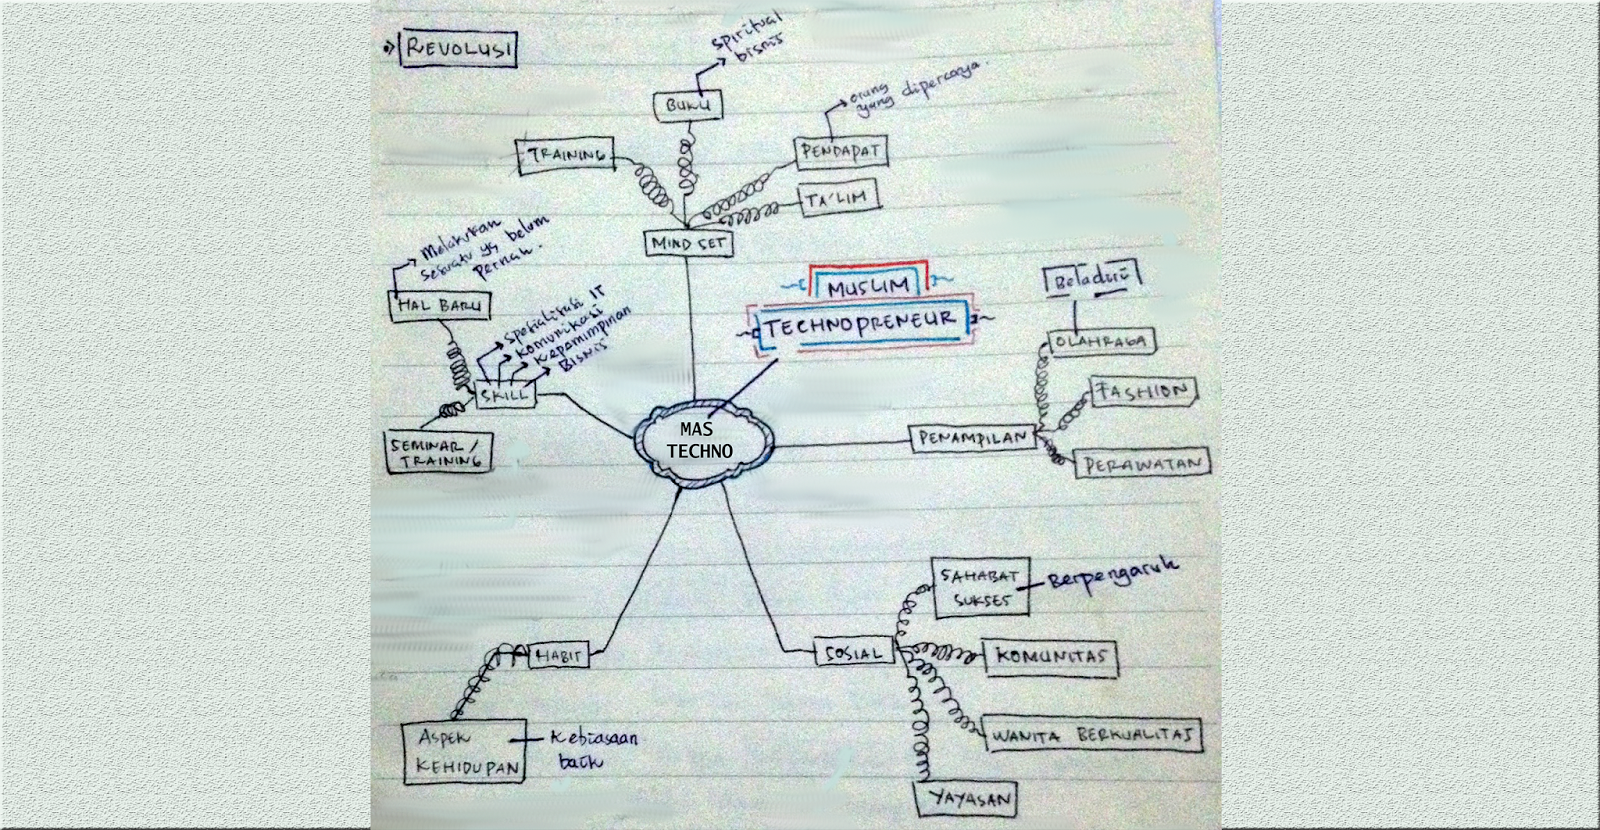 REVOLUSI
spiritual
bisnis
BUKU
orang
yang dipercaya.
TRAINING
PENDAPAT
TA'LIM
MIND SET
Melakukan
sesuatu yg belum
pernah.
HAL BARU
MUSLIM
TECHNOPRENEUR
Beladiri
spesialisasi IT
komunikasi
kepemimpinan
Bisnis
OLAHRAGA
SKILL
FASHION
MAS
TECHNO
SEMINAR /
TRAINING
PENAMPILAN
PERAWATAN
SAHABAT
SUKSES
Berpengaruh
HABIT
SOSIAL
KOMUNITAS
ASPEK
KEHIDUPAN
Kebiasaan
baik
WANITA BERKUALITAS
YAYASAN